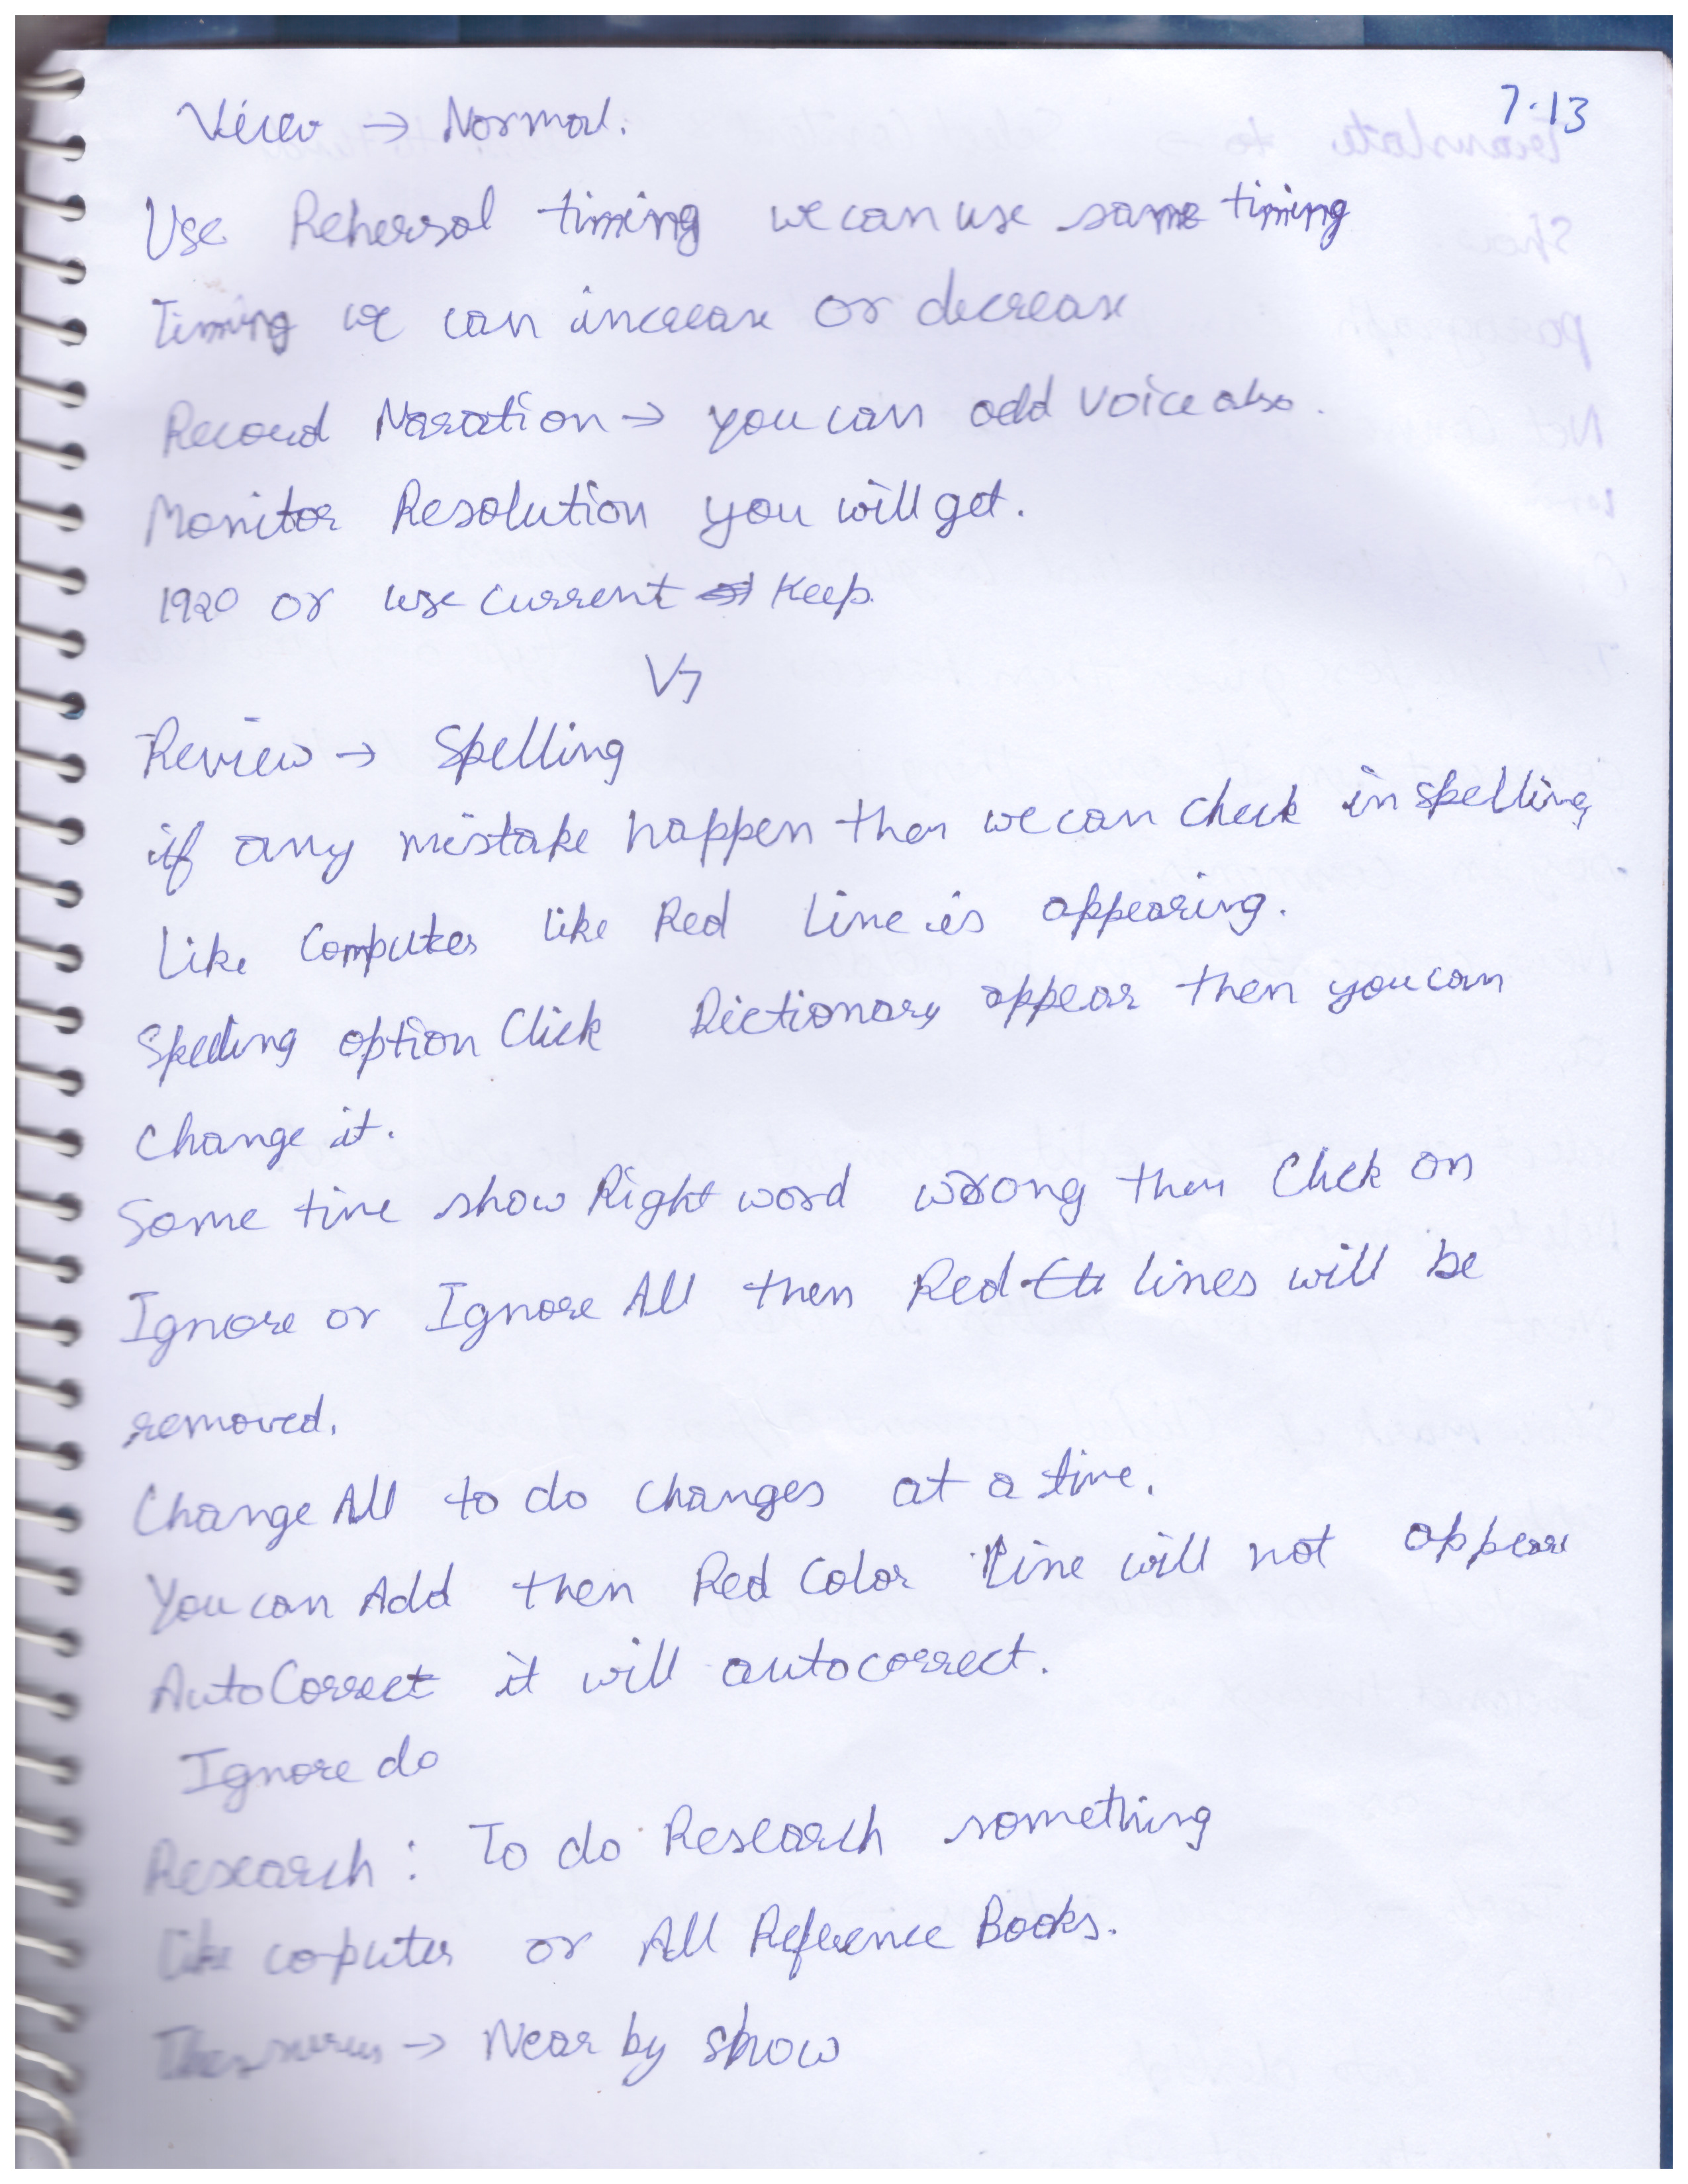 7.13
View → Normal.
Use Rehersal timing we can use same timing
Timing we can increase or decrease
Record Naration → you can add voice also.
Monitor Resolution you will get.
1920 or use current Keep.
V7
Review → Spelling
if any mistake happen then we can check in spelling
Like Computer like Red Line is appearing.
Spelling option Click Dictionary appear then you can
change it.
Some time show Right word wrong then Click on
Ignore or Ignore All then Red lines will be
removed.
Change All to do changes at a time.
You can Add then Red Color Line will not appear
AutoCorrect it will autocorrect.
Ignore do
Research : To do Research something
Like coputer or All Reference Books.
→ Near by show